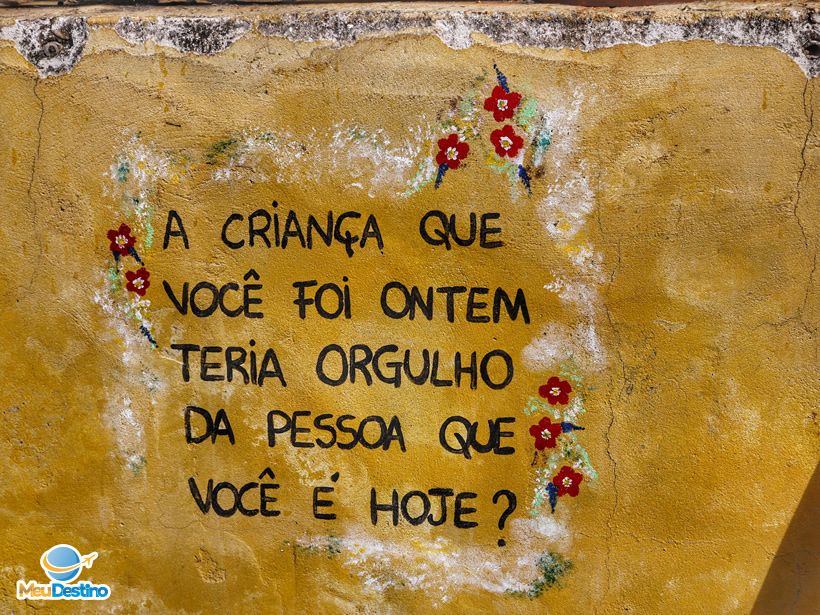 A CRIANÇA QUE
VOCÊ FOI ONTEM
TERIA ORGULHO
DA PESSOA QUE
VOCÊ É HOJE?
MeuDestino